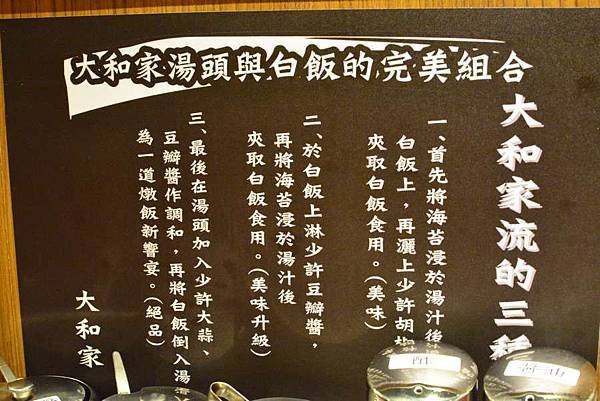 大和家湯頭與白飯的完美組合
大和家流的三種
一、首先將海苔浸於湯汁後
白飯上，再灑上少許胡椒
夾取白飯食用。(美味)
二、於白飯上淋少許豆瓣醬，
再將海苔浸於湯汁後
夾取白飯食用。(美味升級)
三、最後在湯頭加入少許大蒜、
豆瓣醬作調和，再將白飯倒入湯
為一道燉飯新響宴。(絕品)
大和家